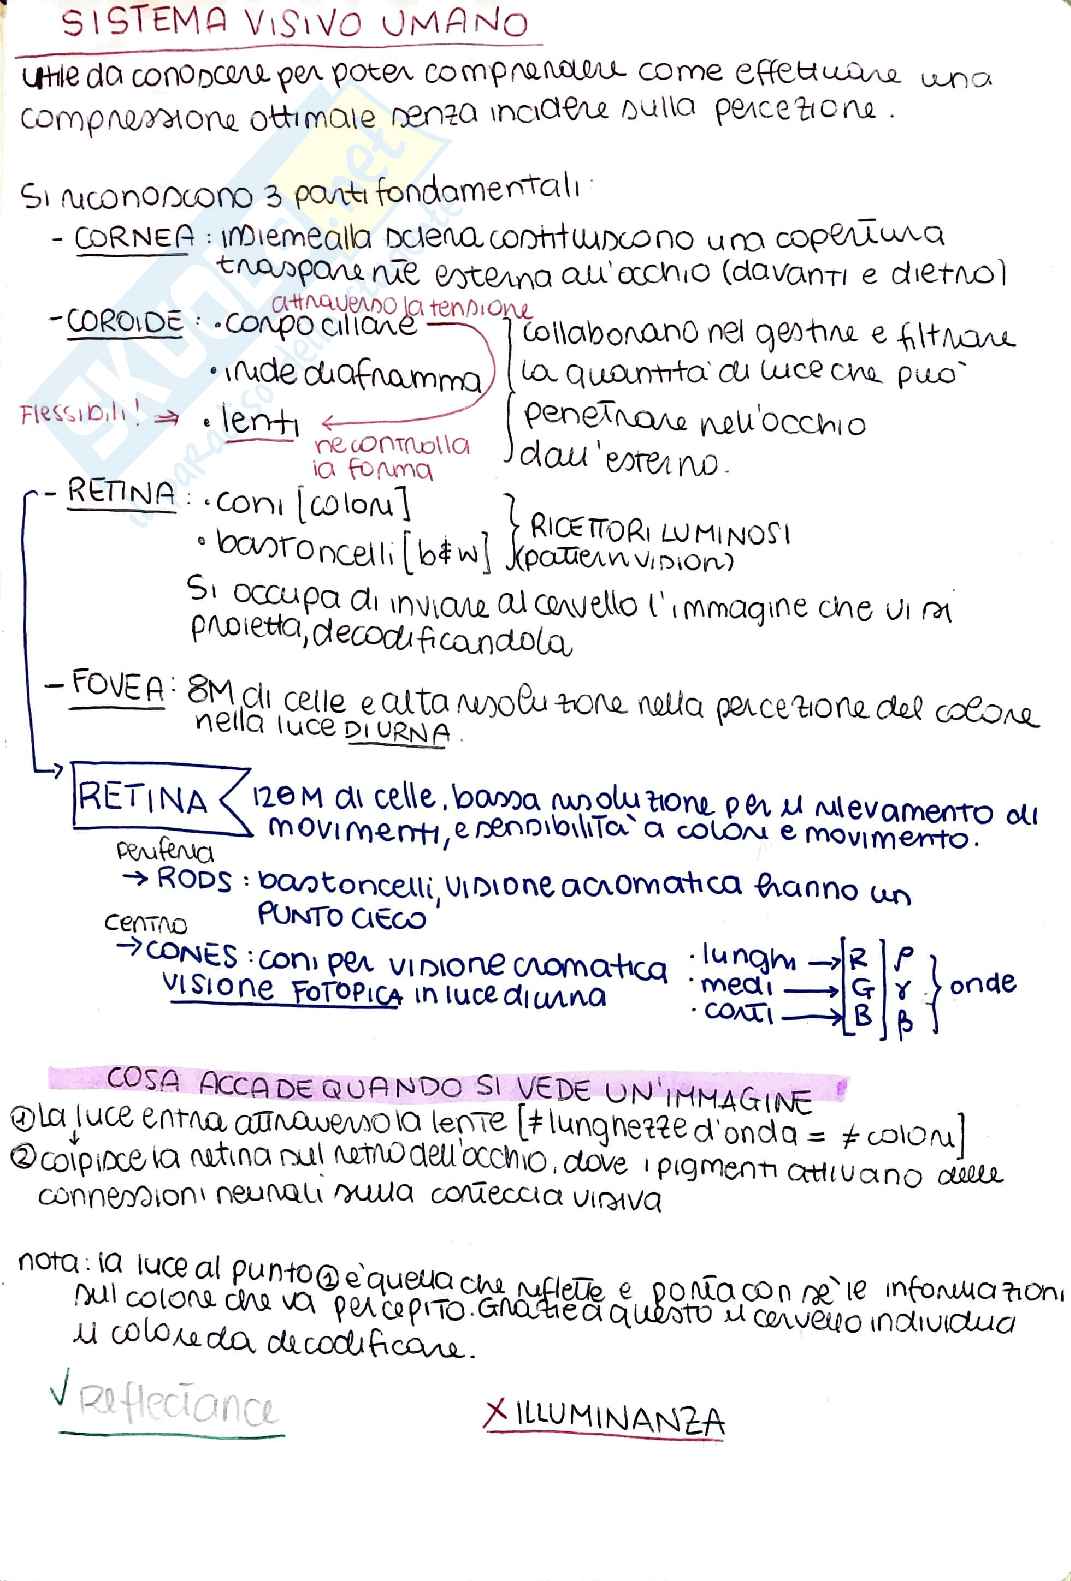 SISTEMA VISIVO UMANO
utile da conoscere per poter comprendere come effettuare una
compressione ottimale senza incidere sulla percezione.
Si riconoscono 3 parti fondamentali:
- CORNEA: insieme alla sclera costituiscono una copertura
trasparente esterna all'occhio (davanti e dietro)
attraverso la tensione
- COROIDE: • corpo ciliare
• iride diaframma
Flessibili! ⇒ • lenti
ne controlla
la forma
collaborano nel gestire e filtrare
la quantità di luce che può
penetrare nell'occhio
dall'esterno.
- RETINA: • coni [colori]
• bastoncelli [b&w]
RICETTORI LUMINOSI
(pattern vision)
Si occupa di inviare al cervello l'immagine che vi si
proietta, decodificandola
- FOVEA: 8M di celle e alta risoluzione nella percezione del colore
nella luce DIURNA.
RETINA 120M di celle, bassa risoluzione per il rilevamento di
movimenti, e sensibilità a colori e movimento.
periferia
→ RODS: bastoncelli, visione acromatica hanno un
PUNTO CIECO
centro
→ CONES: coni per visione cromatica
VISIONE FOTOPICA in luce diurna
• lunghi → [R] ρ
• medi → [G] γ } onde
• corti → [B] β
COSA ACCADE QUANDO SI VEDE UN'IMMAGINE
① La luce entra attraverso la lente [≠ lunghezze d'onda = ≠ colori]
② colpisce la retina sul retro dell'occhio, dove i pigmenti attivano delle
connessioni neurali sulla corteccia visiva
nota: la luce al punto ① è quella che riflette e porta con sè le informazioni
sul colore che va percepito. Grazie a questo il cervello individua
il colore da decodificare.
√ Reflectance
X ILLUMINANZA
SKUOLA.net